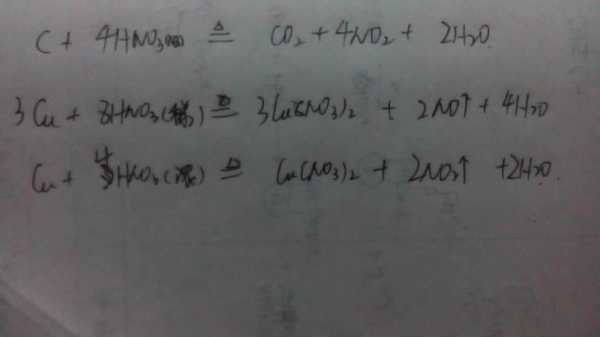 C + 4HNO₃(浓) ≜ CO₂ + 4NO₂ + 2H₂O
3Cu + 8HNO₃(稀) ≜ 3Cu(NO₃)₂ + 2NO↑ + 4H₂O
Cu + 4HNO₃(浓) ≜ Cu(NO₃)₂ + 2NO₂↑ + 2H₂O.